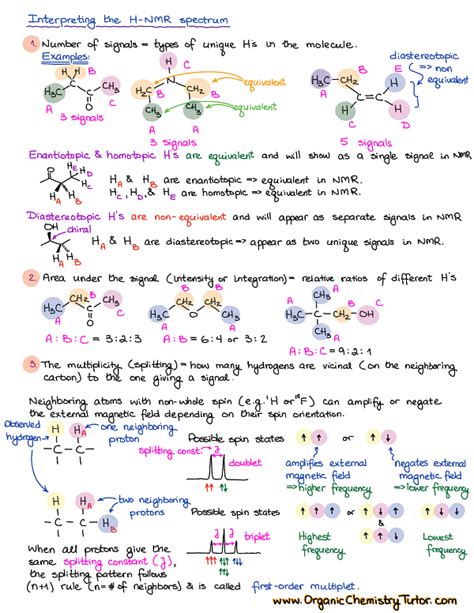 Interpreting the H-NMR spectrum
1. Number of signals = types of unique H's in the molecule.
Examples:
H H B
H₃C CH₃
A O C
3 signals
H C
N
B B
H₃C CH₃
A A
equivalent
equivalent
3 signals
B
H₃C-CH₂ E H
A
H₃C C=C H
C H D
5 signals
diastereotopic
=> non
equivalent
Enantiotopic & homotopic H's are equivalent and will show as a single signal in NMR
O HA HB
HC
HD
HE
HA & HB are enantiotopic => equivalent in NMR.
HC, HD, & HE are homotopic => equivalent in NMR.
Diastereotopic H's are non-equivalent and will appear as separate signals in NMR
OH chiral
HA HB
HA & HB are diastereotopic => appear as two unique signals in NMR.
2. Area under the signal (intensity or integration) = relative ratios of different H's
B
H₃C CH₂ CH₃
A O C
A:B:C = 3:2:3
B B
H₃C CH₂ O CH₂ CH₃
A A
A:B = 6:4 or 3:2
A
CH₃ B
H₃C CH₂-OH
CH₃ C
A:B:C = 9:2:1
3. The multiplicity (splitting) = how many hydrogens are vicinal (on the neighboring
carbon) to the one giving a signal.
Neighboring atoms with non-whole spin (e.g. ¹H or ¹⁹F) can amplify or negate
the external magnetic field depending on their spin orientation.
Observed
hydrogen
H HA
-C-C-
one neighboring
proton
Possible spin states
splitting const. J
doublet
↑ or ↓
amplifies external
magnetic field
=> higher frequency
negates external
magnetic field
=> lower frequency
H HA
-C-C-HB
two neighboring
protons
Possible spin states
J J
triplet
↑↑ or ↑↓ ↓↑ or ↓↓
&
Highest
frequency
Lowest
frequency
When all protons give the
same splitting constant (J),
the splitting pattern follows
(n+1) rule (n = # of neighbors) & is called first-order multiplet.
www.OrganicChemistryTutor.com